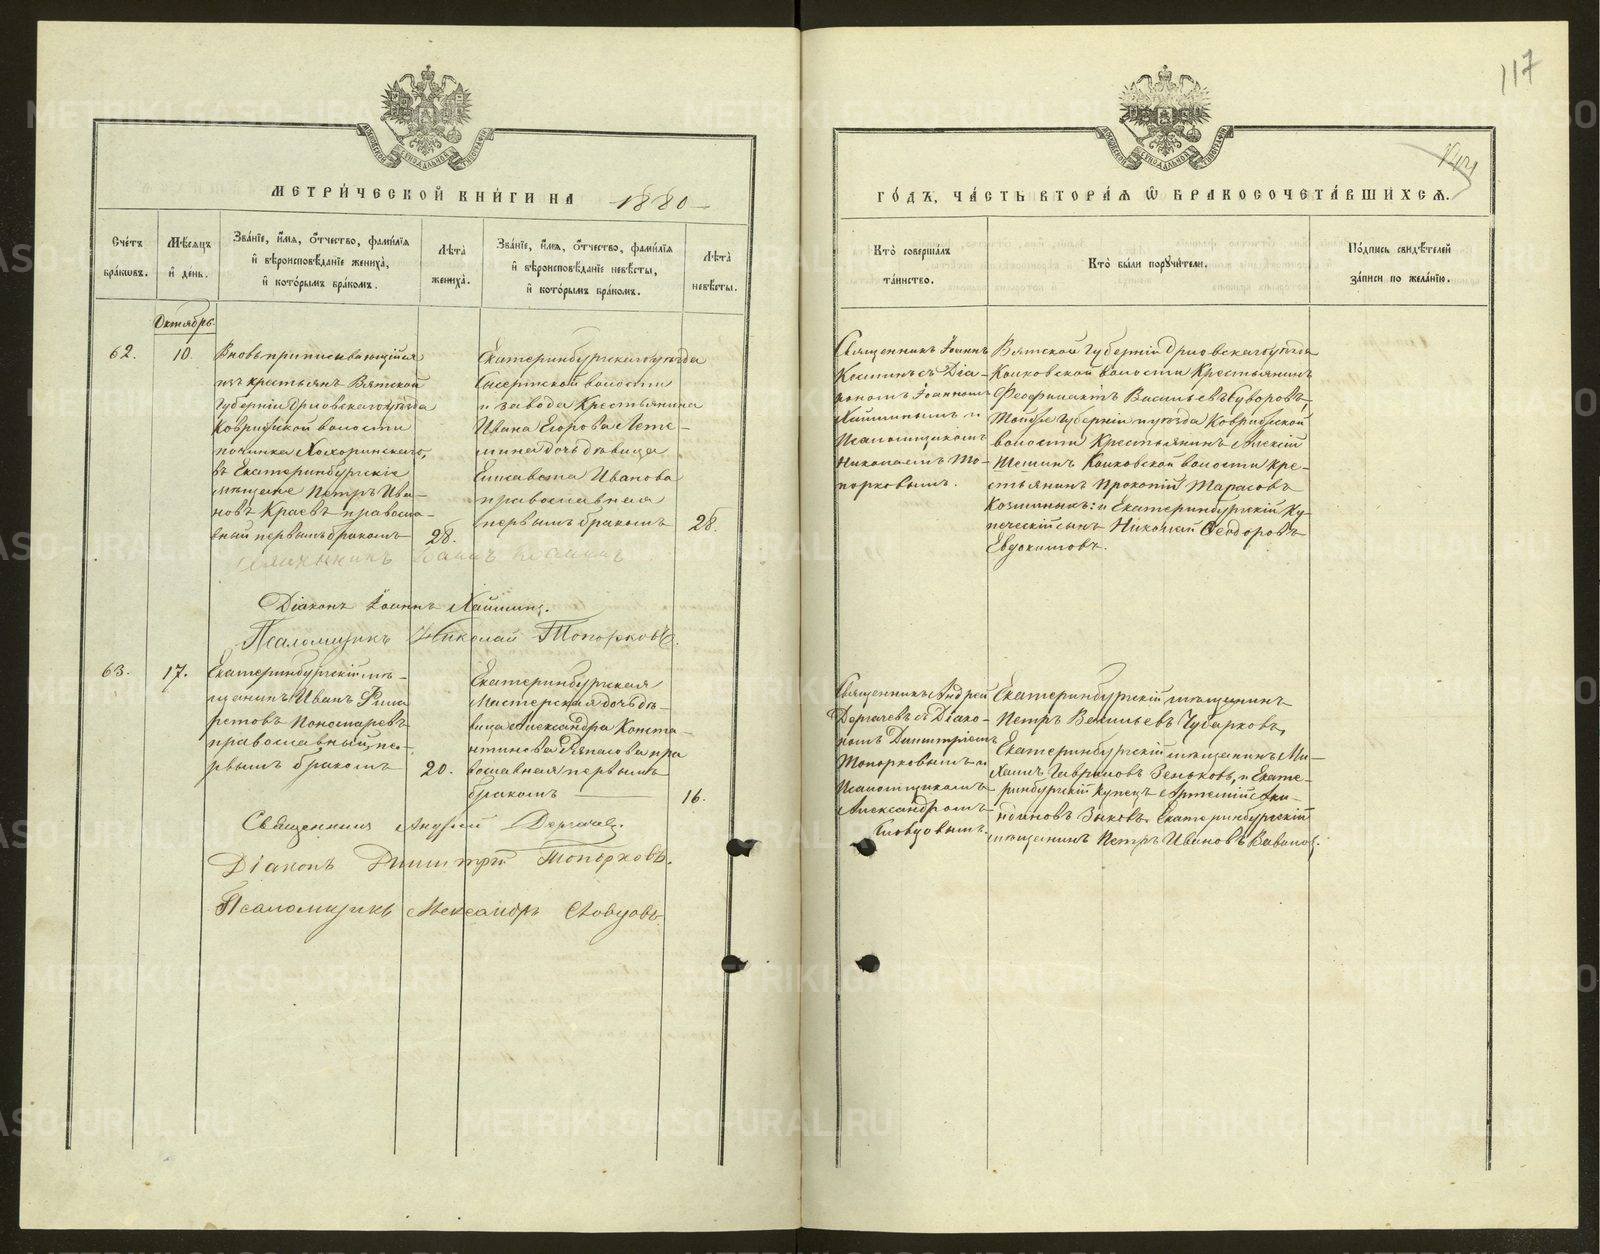 117
МЕТРИЧЕСКОЙ КНИГИ НА 1880
ГОДЪ, ЧАСТЬ ВТОРАЯ Ѿ БРАКОСОЧЕТАВШИХСЯ.
Счетъ браковъ.
Мѣсяцъ и день.
Званіе, имя, отчество, фамилія
и вѣроисповѣданіе жениха,
и которымъ бракомъ.
Лѣта
жениха.
Званіе, имя, отчество, фамилія
и вѣроисповѣданіе невѣсты,
и которымъ бракомъ.
Лѣта
невѣсты.
Кто совершалъ
таинство.
Кто были поручители.
Подпись свидѣтелей
записи по желанію.
Октябрь.
62.
10.
Вновь приписывающійся
изъ крестьянъ Вятской
Губерніи Орловскаго уѣзда
волости
починка
въ Екатеринбургскіе
мѣщане Петръ Ива-
новъ Краевъ правосла-
вный первымъ бракомъ
28.
Екатеринбургскаго уѣзда
Сысертской волости
и завода Крестьянина
Ивана Егорова Лете-
мина дочь дѣвица
Елисавета Иванова
православная
первымъ бракомъ
28.
Священникъ Іоаннъ
съ Діа-
кономъ Іоанномъ
и
Псаломщикомъ
Николаемъ То-
порковымъ.
Вятской Губерніи Орловскаго уѣзда
волости Крестьянинъ
Феофилактъ Васильевъ Суворовъ,
Тойже Губерніи и уѣзда
волости Крестьянинъ Алексій
волости кре-
стьянинъ Прокопій Тарасовъ
и Екатеринбургскій Ку-
печескій сынъ Николай Феодоровъ
Евдокимовъ.
Священникъ Іоаннъ
Діаконъ Іоаннъ
Псаломщикъ Николай Топорковъ.
63.
17.
Екатеринбургскій мѣ-
щанинъ Иванъ Фила
ретовъ Пономаревъ
православный пе-
рвымъ бракомъ
20.
Екатеринбургская
Мастерская дочь дѣ-
вица Александра Конста-
нтинова пра
вославная первымъ
бракомъ
16.
Священникъ Андрей
Дергачевъ съ Діако-
номъ Димитріемъ
Топорковымъ и
Псаломщикомъ
Александромъ
Словцовымъ.
Екатеринбургскій мѣщанинъ
Петръ Васильевъ Чубарковъ,
Екатеринбургскій мѣщанинъ Ми-
хаилъ Гавриловъ Зеньковъ, и Екате-
ринбургскій купецъ Артемій Аки-
ндиновъ Зыковъ, Екатеринбургскій
мѣщанинъ Петръ Ивановъ
Священникъ Андрей Дергачевъ.
Діаконъ Димитрій Топорковъ.
Псаломщикъ Александръ Словцовъ
METRIKI.GASO-URAL.RU